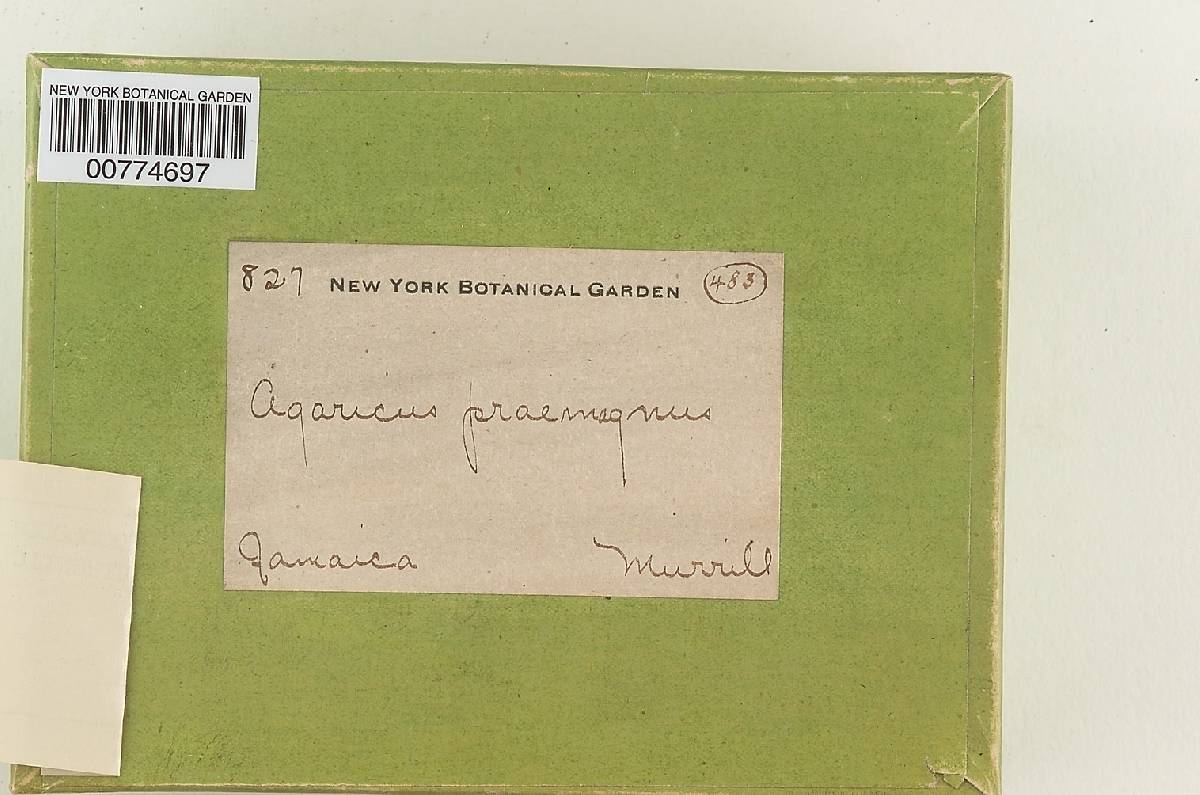 NEW YORK BOTANICAL GARDEN
00774697
827 NEW YORK BOTANICAL GARDEN 483
Agaricus praemagnus
Jamaica Murrill